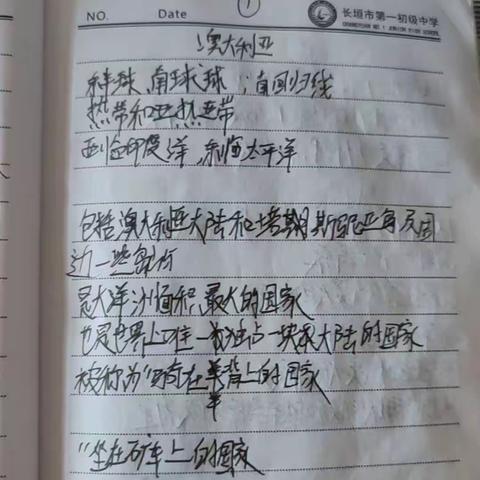 NO.
Date
①
长垣市第一初级中学
CHANGYUAN NO.1 JUNIOR HIGH SCHOOL
澳大利亚
南球球;南回归线
热带和亚热带
西临印度洋,东临太平洋
包括澳大利亚大陆和塔斯马尼亚岛及周
边一些岛屿
是大洋洲面积最大的国家
也是世界上唯一独占一块大陆的国家
被称为"骑在羊背上的国家
羊
"坐在矿车上的国家